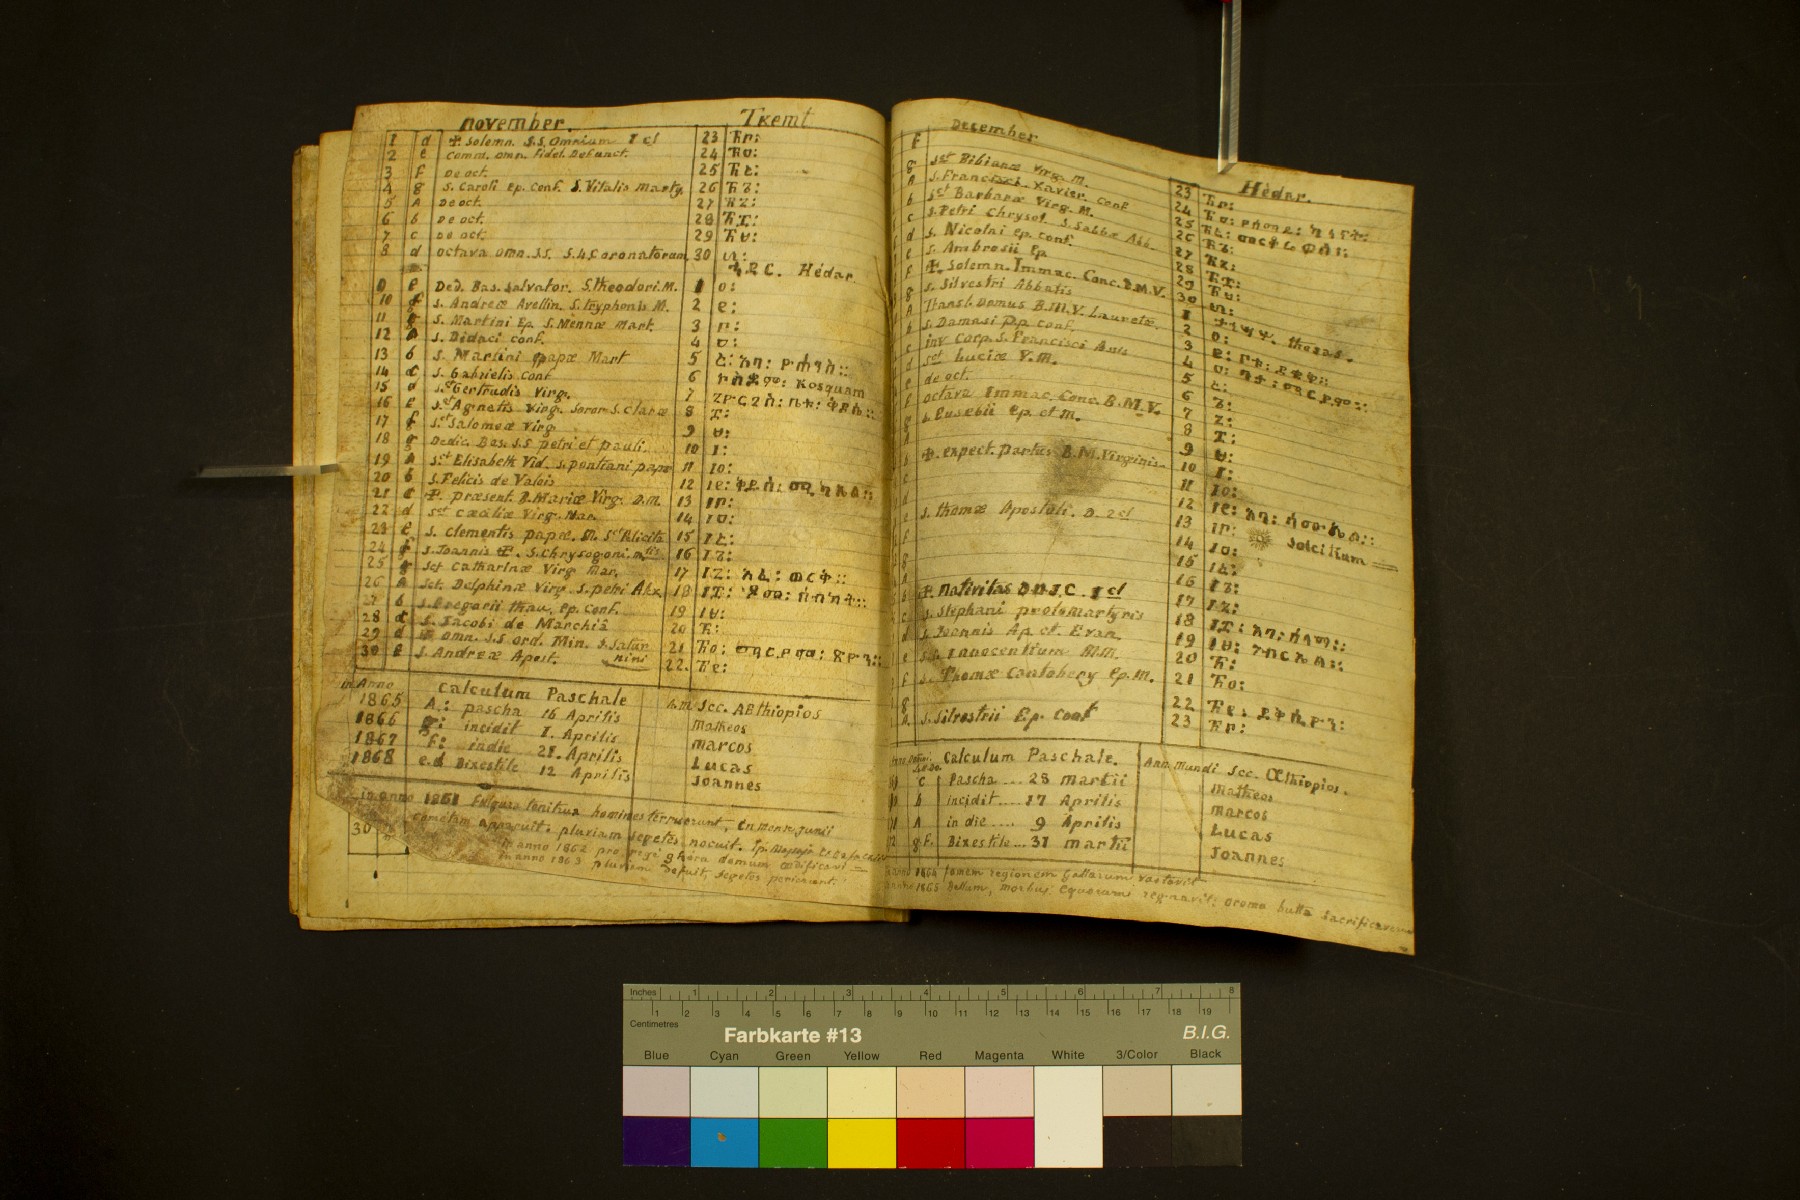 november. Tkemt
1 d ✠ Solemn. S.S. Omnium I cl 23 ፳፫፡
2 e Comm. omn. Fidel. Defunct. 24 ፳፬፡
3 f De oct. 25 ፳፭፡
4 g S. Caroli Ep. Conf. S. Vitalis Marty. 26 ፳፮፡
5 A De oct. 27 ፳፯፡
6 b De oct. 28 ፳፰፡
7 c De oct. 29 ፳፱፡
8 d octava omn. S.S. S. 4 Coronatorum 30 ፴፡
ኅዳር. Hédar.
9 e Ded. Bas. Salvator. S. theodori. M. 1 ፩፡
10 f S. Andreæ Avellin. S. tryphonis M. 2 ፪፡
11 g S. Martini Ep. S. Mennæ Mart. 3 ፫፡
12 A S. Didaci conf. 4 ፬፡
13 b S. Martini papæ Mart 5 ፭፡
14 c S. Gabrielis Conf. 6 Kosquam
15 d Sct Gertrudis Virg. 7
16 e Sct Agnetis Virg. Soror S. Claræ 8 ፰፡
17 f Sct Salomeæ Virg 9 ፱፡
18 g Dedic. Bas. S.S petri et pauli. 10 ፲፡
19 A Sct Elisabeth Vid. S. pontiani papæ 11 ፲፩፡
20 b S. Felicis de Valois 12 ፲፪፡
21 c ✠. præsent. B. Mariæ Virg. D.M. 13 ፲፫፡
22 d Sct Cæciliæ Virg. Mar. 14 ፲፬፡
23 e S. Clementis papæ. M. Sct Felicita 15 ፲፭፡
24 f S. Joannis ✠. S. Chrysogoni. mtis 16 ፲፮፡
25 g Sct Catharinæ Virg Mar. 17 ፲፯፡
26 A Sct. Delphinæ Virg. S. petri Alex. 18 ፲፰፡
27 b S. Gregorii thau. Ep. Conf. 19 ፲፱፡
28 c S. Jacobi de Marchiâ 20 ፳፡
29 d ✠ omn. S.S ord. Min. S. Satur 21 ፳፩፡
nini
30 e S. Andreæ Apost. 22. ፳፪፡
in Anno Calculum Paschale A.m. Scc. AEthiopios
1865 A.: pascha 16 Aprilis Matheos
1866 g: incidit 1. Aprilis Marcos
1867 f: indie 21. Aprilis Lucas
1868 e.d Bixestile 12 Aprilis Joannes
in anno 1861 Fulgura tonitrua homines terruerunt, en mense junii
cometam apparuit. pluviam segetes nocuit.
in anno 1862 pro regi ghéra domum ædificavi
in anno 1863 pluviam defuit, segetes perierunt.
30
December Hédar.
f 23 ፳፫፡
g Sct Bibianæ Virg. M. 24 ፳፬፡
A S. Francisci Xavier. Conf 25 ፳፭፡
b Sct Barbaræ Virg. M. 26 ፳፮፡
c S. Petri Chrysol. S. Sabbæ Abb. 27 ፳፯፡
d S. Nicolai Ep. Conf. 28 ፳፰፡
e S. Ambrosii Ep 29 ፳፱፡
f ✠. Solemn. Immac. Conc. B.M.V. 30 ፴፡
g S. Silvestri Abbatis thesas.
A Transl. Domus B.M.V. Lauretæ. 1 ፩፡
b S. Damasi Pp conf. 2 ፪፡
c inv Corp. S. Francisci Assis 3
d Sct Luciæ V.M. 4 ፬፡
e de oct. 5 ፭፡
f octava Immac. Conc. B.M.V. 6 ፮፡
g S. Eusebii Ep. et M. 7 ፯፡
A 8 ፰፡
b ✠. expect. Partus B.M. Virginis 9 ፱፡
c 10 ፲፡
d 11 ፲፩፡
e S. thomæ Apostoli. D. 2 cl 12 ፲፪፡
f 13 ፲፫፡ Solcitium
g 14 ፲፬፡
A 15 ፲፭፡
b ✠ Nativitas D.N.J.C. I cl 16 ፲፮፡
c S. Stephani protomartyris 17 ፲፯፡
d S. Joannis Ap. et. Evan. 18 ፲፰፡
e S.S. Innocentium M.M. 19 ፲፱፡
f S. Thomæ Cantobery Ep. M. 20 ፳፡
g 21 ፳፩፡
A S. Silvestrii Ep. Conf 22 ፳፪፡
23 ፳፫፡
Calculum Paschale. Ann. Mundi Scc. Æthiopios.
C Pascha .... 28 martii Matheos
b incidit .... 17 Aprilis Marcos
A in die .... 9 Aprilis Lucas
g F. Bixestile ... 31 martii Joannes
anno 1864 famem regionem Gallarum vastavit
anno 1865 Bellum, morbus equorum regnavit: oromo butta sacrificaverunt
Inches 1 2 3 4 5 6 7 8
Centimetres 1 2 3 4 5 6 7 8 9 10 11 12 13 14 15 16 17 18 19
Farbkarte #13 B.I.G.
Blue Cyan Green Yellow Red Magenta White 3/Color Black